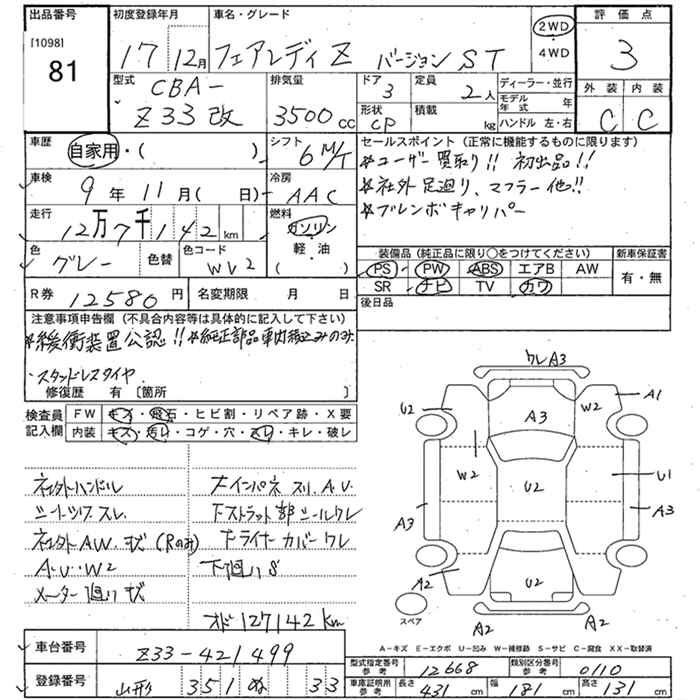 出品番号 初度登録年月 車名・グレード 評価点
[1098] 81
17 12月 フェアレディZ バージョンST 2WD・4WD 3
型式 CBA-Z33改 排気量 3500cc ドア 3 定員 2人 ディーラー・並行 外装 内装
形状 CP 積載 kg モデル年式 年 C C
ハンドル 左・右
車歴 自家用・( ) シフト 6 M/T セールスポイント (正常に機能するものに限ります)
☆ユーザー買取り!! 初出品!!
車検 9年11月( 日) 冷房 AAC ☆社外足廻り、マフラー他!!
走行 12万7千142km 燃料 ガソリン ☆ブレンボキャリパー
軽・油 ( )
色 グレー 色替 色コード WV2 装備品 (純正品に限り○をつけてください) 新車保証書
PS PW ABS エアB AW 有・無
SR ナビ TV カワ
R券 12580円 名変期限 月 日 後日品
注意事項申告欄 (不具合内容等は具体的に記入して下さい)
☆緩衝装置公認!! ☆純正部品車内積込みのみ
・スタッドレスタイヤ
修復歴 有 [箇所 ]
検査員記入欄 FW キズ・飛石・ヒビ割・リペア跡・X要
内装 キズ・汚レ・コゲ・穴・スレ・キレ・破レ
社外ハンドル ナインパネ スリ.A.U.
シートツワ.スレ. F.ストラット部シールワレ
社外AW.キズ(Rのみ) F.ライナーカバーワレ
A.U.W2 下廻りS
メーター廻りキズ
オド127142km
ワレA3
U2 A3 W2 A1
W2 U2 U1
A3 A3
A2 U2
A2 A2
スペア
A-キズ E-エクボ U-凹み W-補修跡 S-サビ C-腐食 XX-取替済
車台番号 Z33-421499 型式指定番号 参考 12668 類別区分番号 参考 0110
登録番号 山形 351 ぬ 33 車庫証明用 参考 長さ 431cm 幅 181cm 高さ 131cm